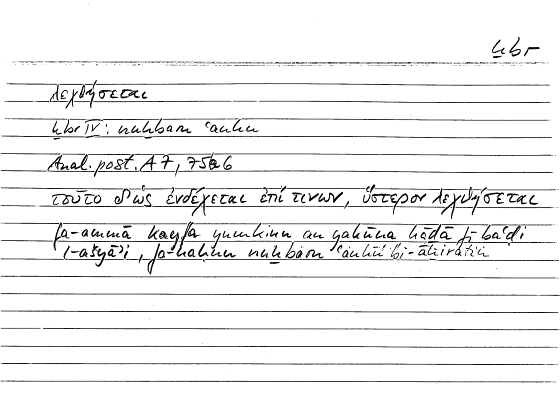 ḫbr
λεχθήσεται
ḫbr IV: nuḫbaru ʿanhu
Anal. post. A 7, 75b6
τοῦτο δ' ὡς ἐνδέχεται ἐπί τινων, ὕστερον λεχθήσεται
fa-ammā kayfa yumkinu an yakūna hāḏā fī baʿḍi
l-ašyāʾi, fa-naḥnu nuḫbiru ʿanhu bi-āḫiratin